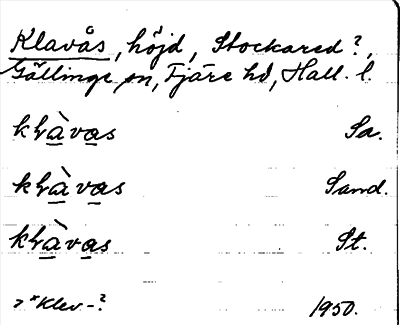 Klavås, höjd, Stockared?,
Gällinge sn, Fjäre hd, Hall. l.
kḷàvas Sa.
kḷàvas Sand.
kḷàvas St.
> *Klev-? 1950.